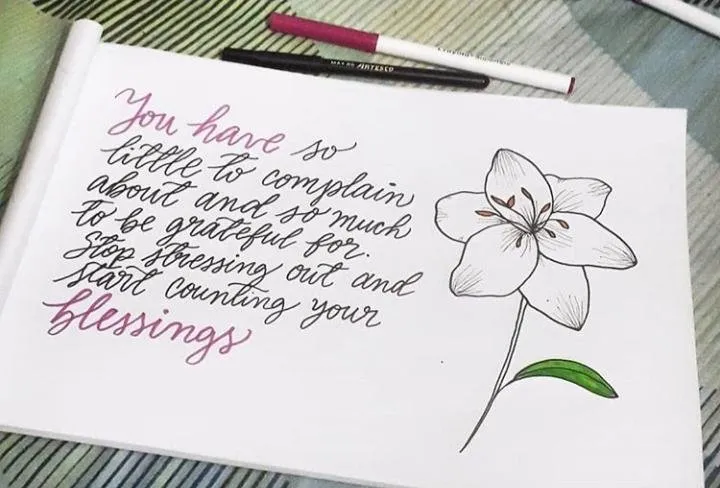 You have so
little to complain
about and so much
to be grateful for.
Stop stressing out and
start counting your
blessings
ARTESCO